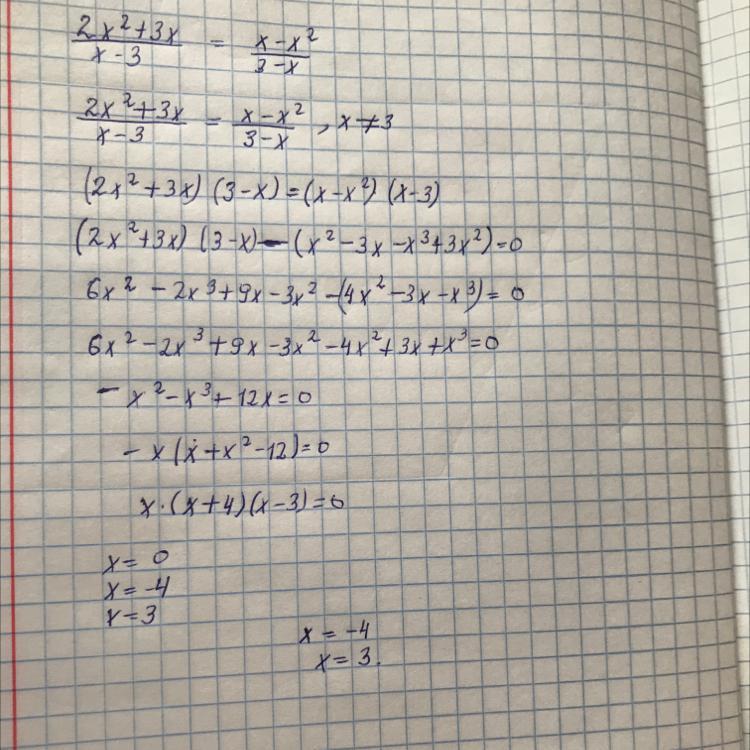 (2x²+3x)/(x-3) = (x-x²)/(3-x)
(2x²+3x)/(x-3) = (x-x²)/(3-x) , x≠3
(2x²+3x) (3-x)=(x-x²) (x-3)
(2x²+3x) (3-x)-(x²-3x-x³+3x²)=0
6x²-2x³+9x-3x²-(4x²-3x-x³)=0
6x²-2x³+9x-3x²-4x²+3x+x³=0
-x²-x³+12x=0
-x(x+x²-12)=0
x·(x+4)(x-3)=0
x=0
x=-4
x=3
x=-4
x=3.